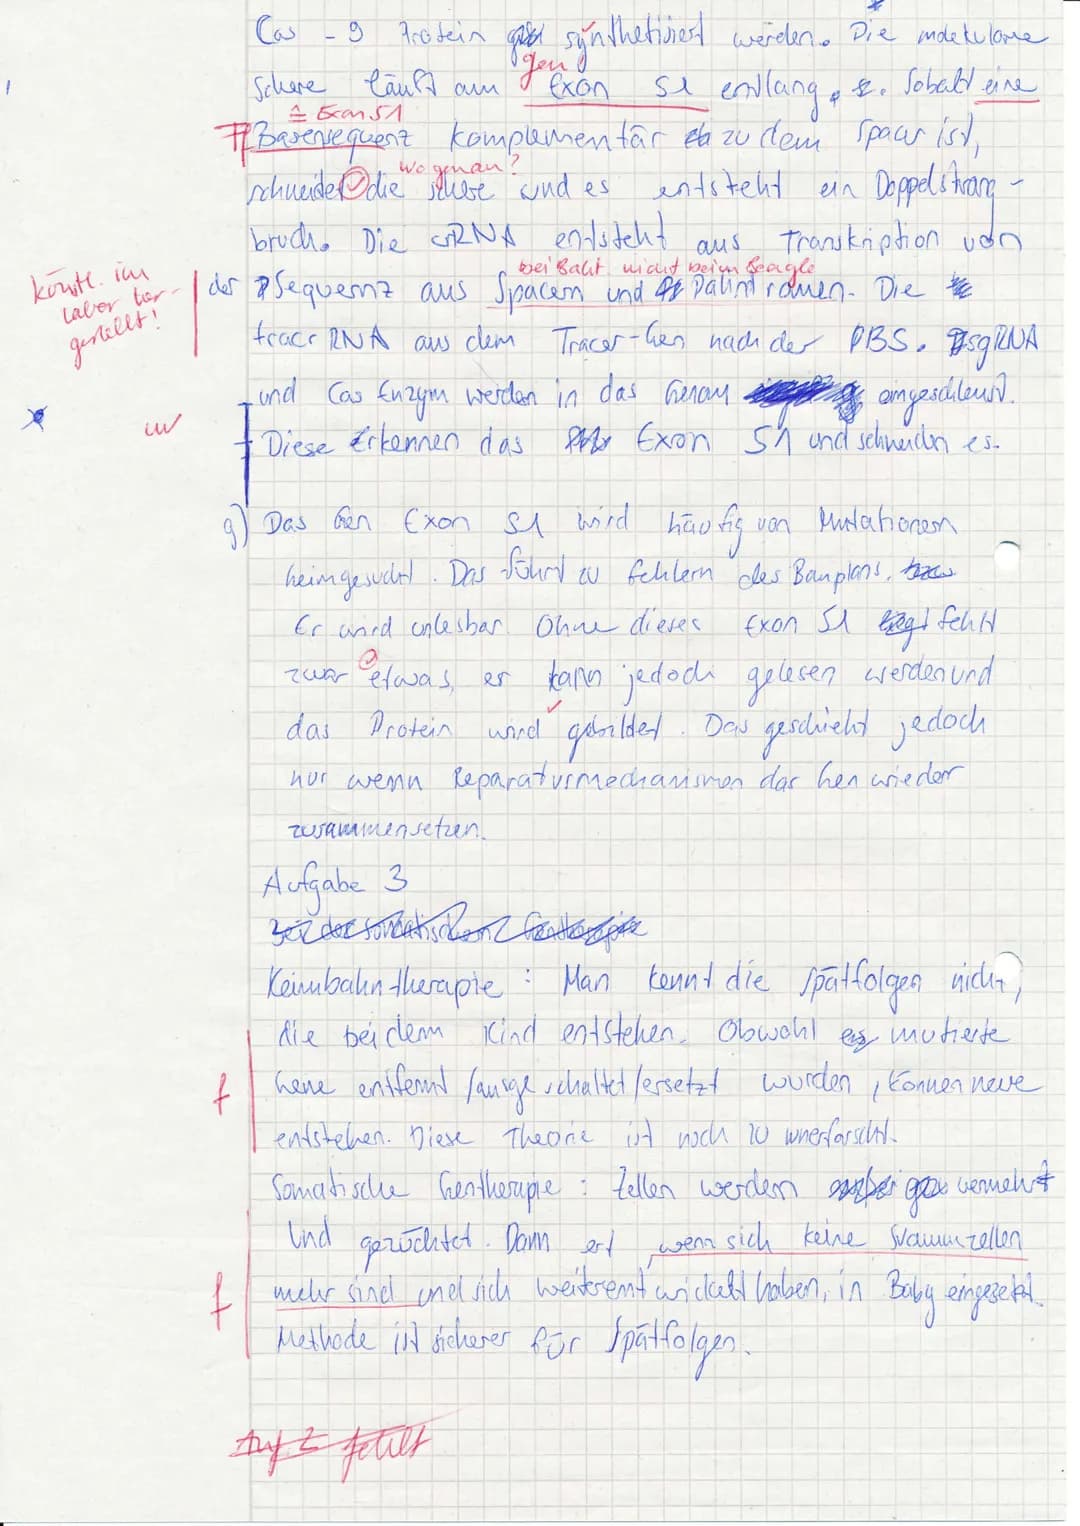 Cas - 9 Protein synthetisiert werden. Die molekulare
gen
Schere läuft am Exon 51 entlang. Sobald eine
≙ Exon 51
F Basensequenz komplementär zu dem Spacer ist,
wo genau?
schneidet die Schere und es entsteht ein Doppelstrang-
bruch. Die crRNA entsteht aus Transkription von
bei Bakt. nicht beim Beagle
der Sequenz aus Spacern und Palindromen. Die
künstl. im
Labor her-
gestellt!
tracr RNA aus dem Tracer-Gen nach der PBS. sgRNA
und Cas Enzym werden in das Genom eingeschleust.
Diese Erkennen das Exon 51 und schneiden es.
g) Das Gen Exon 51 wird häufig von Mutationen
heimgesucht. Das führt zu Fehlern des Bauplans.
Er wird unlesbar. Ohne dieses Exon 51 fehlt
zwar etwas, er kann jedoch gelesen werden und
das Protein wird gebildet. Das geschieht jedoch
nur wenn Reparaturmechanismen das Gen wieder
zusammensetzen.
Aufgabe 3
Bei der somatischen Gentherapie
Keimbahntherapie : Man kennt die Spätfolgen nicht,
die bei dem Kind entstehen. Obwohl mutierte
f Gene entfernt /ausgeschaltet/ersetzt wurden, können neue
entstehen. Diese Theorie ist noch zu unerforscht.
Somatische Gentherapie : Zellen werden vermehrt
Und gezüchtet. Dann erst wenn sich keine Stammzellen
f mehr sind und sich weiterentwickelt haben, in Baby eingesetzt.
Methode ist sicherer für Spätfolgen.
Auf 2 fehlt